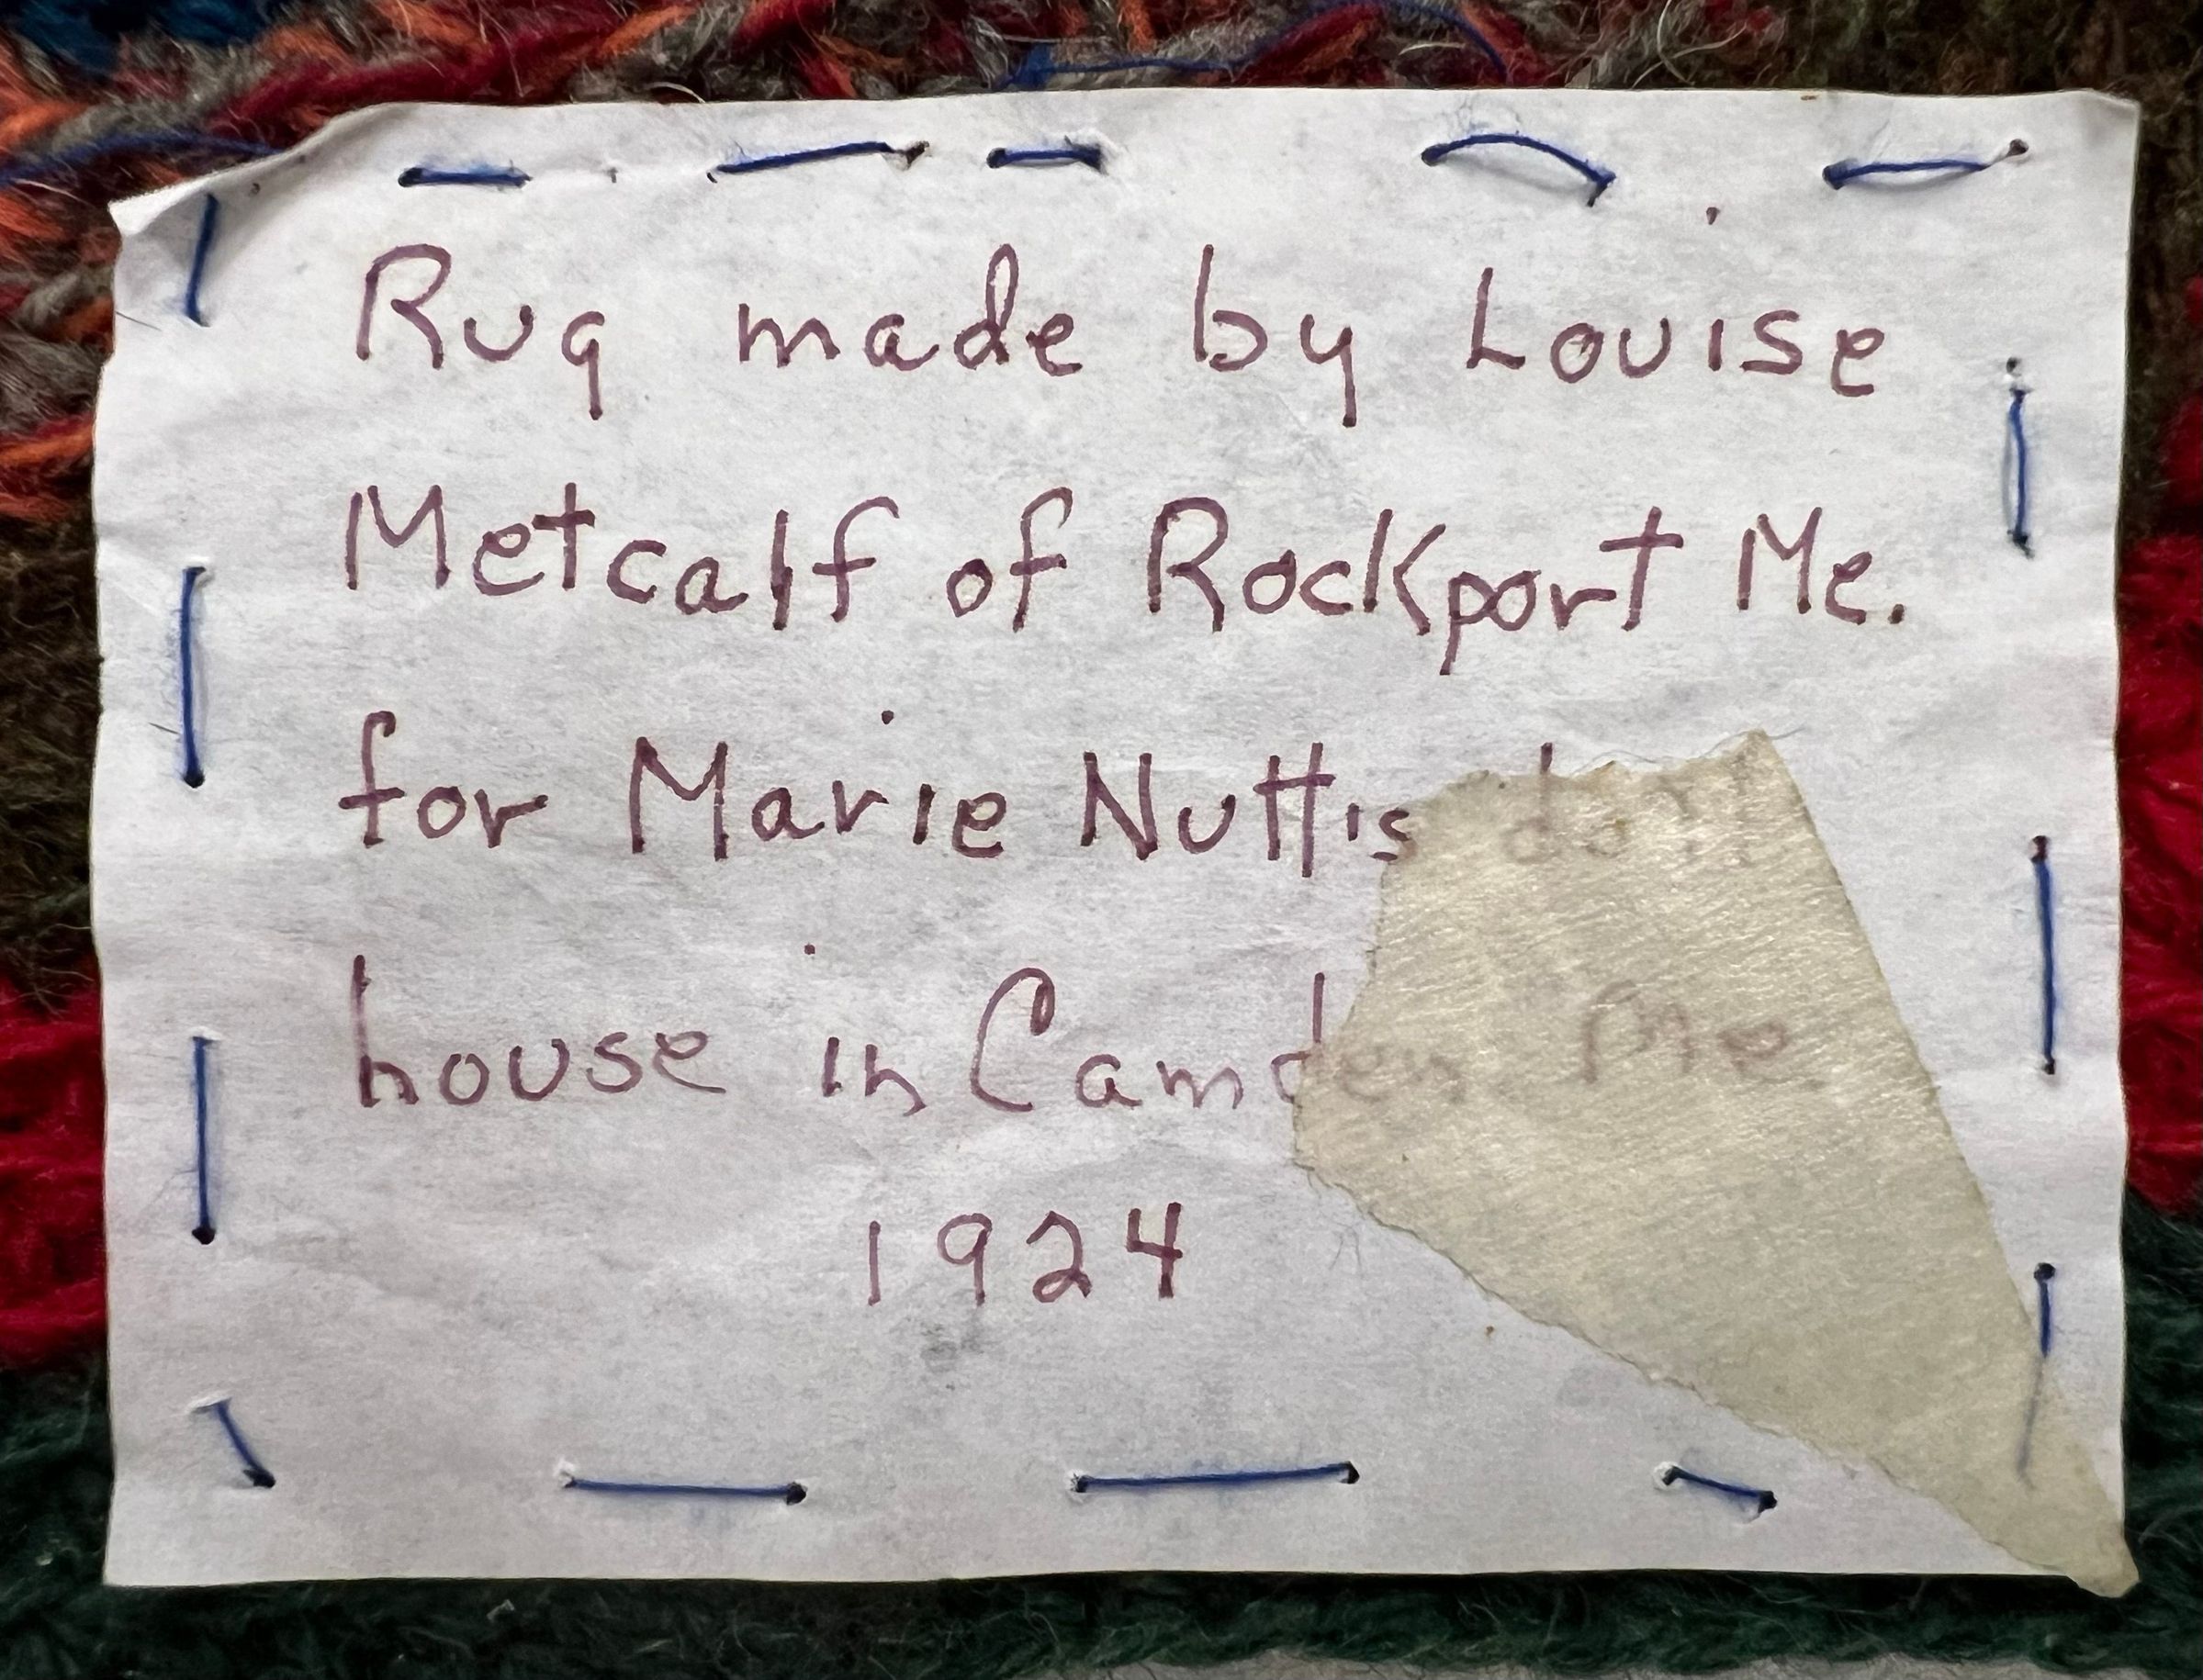 Rug made by Louise
Metcalf of Rockport Me.
for Marie Nuttis doll
house in Camden Me
1924